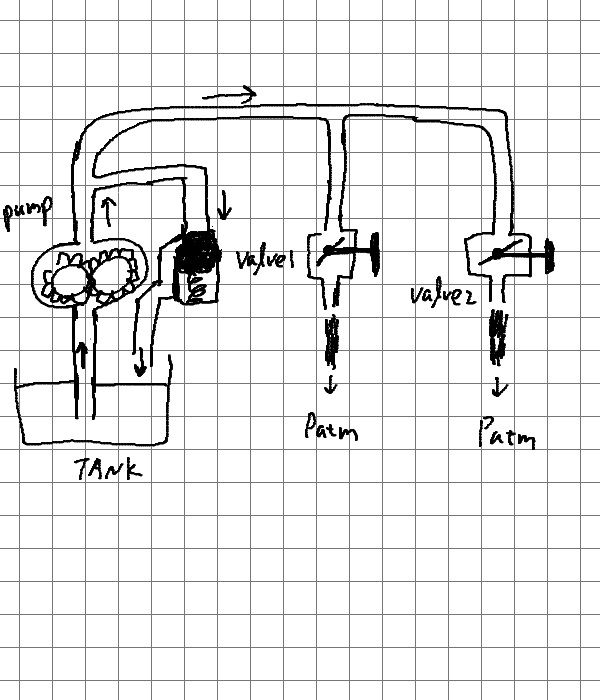 pump
valve1
valve2
Patm
Patm
TANK